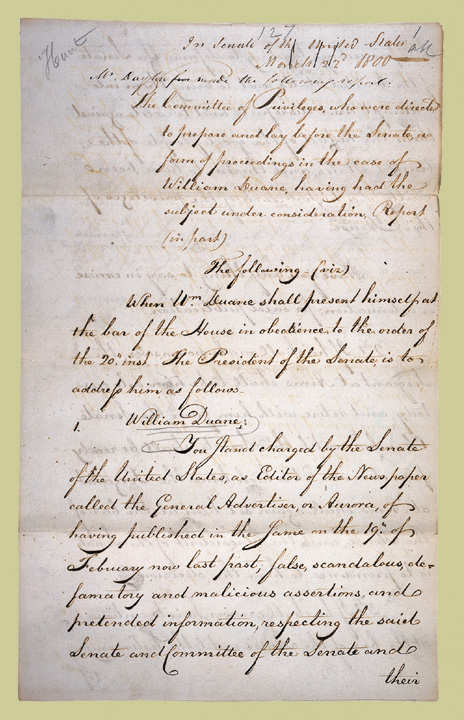 127
In Senate of the United States
March 22d 1800
Mr. Dayton from made the following report.
The Committee of Privileges, who were directed
to prepare and lay before the Senate, a
form of proceedings in the case of
William Duane, having had the
subject under consideration, Report
(in part)
The following (viz)
When Wm. Duane shall present himself at
the bar of the House in obedience to the order of
the 20th inst. The President of the Senate, is to
address him as follows
1. William Duane,
You stand charged by the Senate
of the United States, as Editor of the News paper
called the General Advertiser, or Aurora, of
having published in the same on the 19th of
February now last past, false, scandalous, de-
famatory and malicious assertions, and
pretended information, respecting the said
Senate and Committee of the Senate and
their